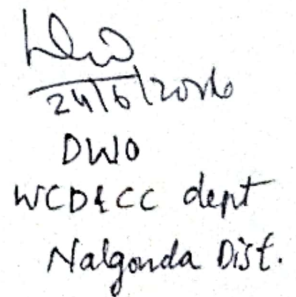 24/6/2026
DWO
WCD&CC dept
Nalgonda Dist.